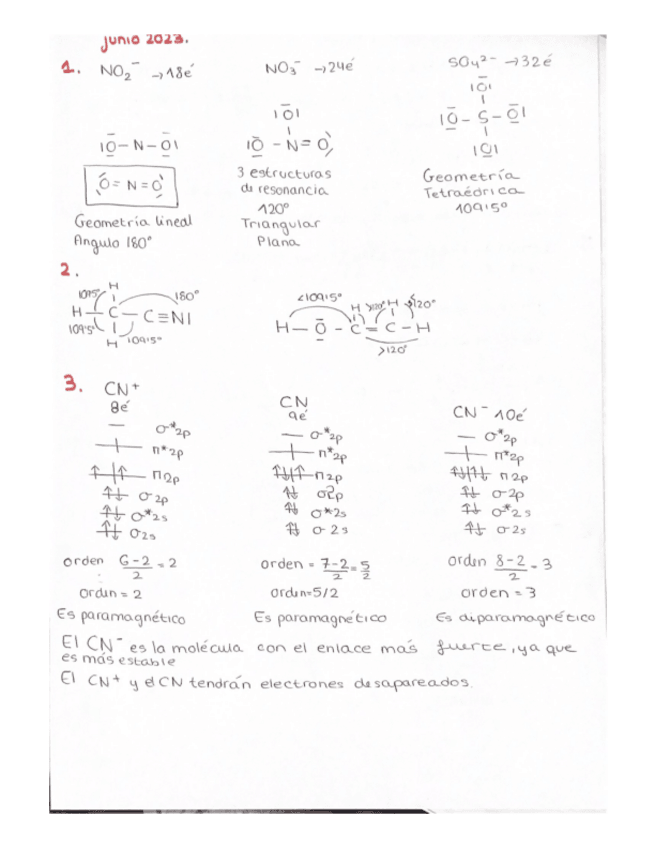 junio 2023.
1. NO2⁻ →18é
NO3⁻ →24é
SO4²⁻ →32é
|O|
|O|
|O–N–O|
|O–N=O
|O–S–O|
|O|
O=N=O
3 estructuras
de resonancia
120°
Triangular
Plana
Geometría
Tetraédrica
109'5°
Geometría lineal
Angulo 180°
2.
H
109'5°
180°
H–C–C≡N|
109'5°
H
109'5°
<109'5°
H
>120°
H
>120°
H–O–C=C–H
>120°
3.
CN⁺
8é
σ*2p
π*2p
π2p
σ2p
σ*2s
σ2s
orden 6-2/2 = 2
orden = 2
Es paramagnético
CN
9é
σ*2p
π*2p
π2p
σ2p
σ*2s
σ2s
orden = 7-2/2 = 5/2
orden=5/2
Es paramagnético
CN⁻ 10é
σ*2p
π*2p
π2p
σ2p
σ*2s
σ2s
orden 8-2/2 = 3
orden = 3
Es diparamagnético
El CN⁻ es la molécula con el enlace más fuerte, ya que
es más estable
El CN⁺ y el CN tendrán electrones desapareados.